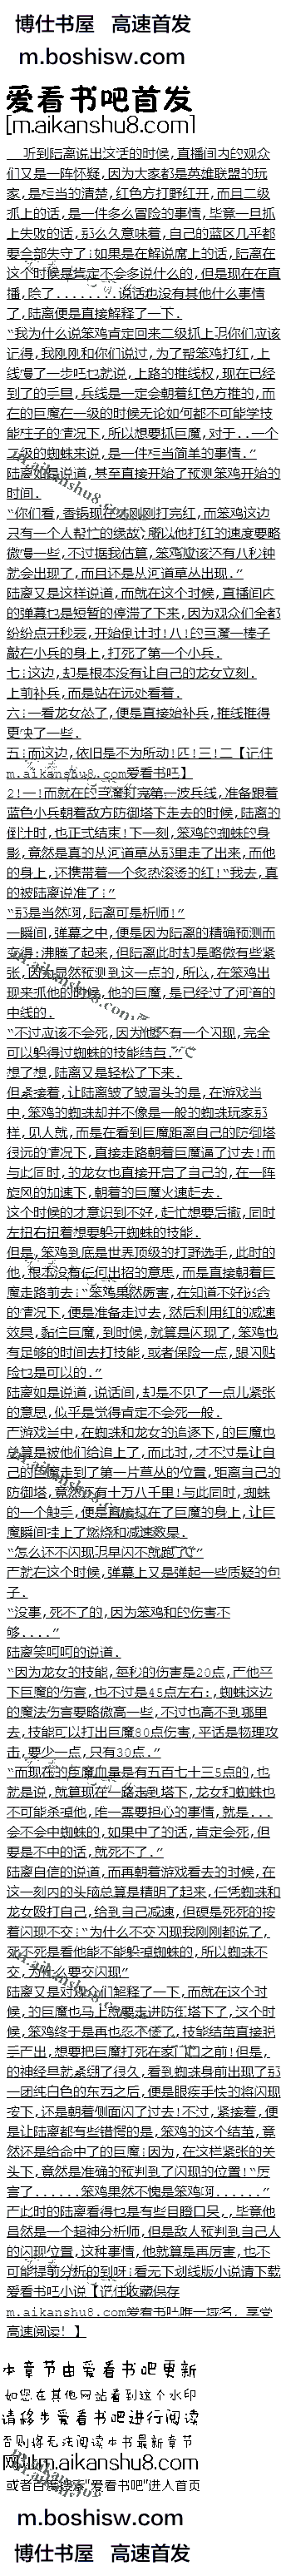 博仕书屋 高速首发
m.boshisw.com
爱看书吧首发
[m.aikanshu8.com]
听到陆离说出这话的时候,直播间内的观众
们又是一阵怀疑,因为大家都是英雄联盟的玩
家,是相当的清楚,红色方打野红开,而且二级
抓上的话,是一件多么冒险的事情,毕竟一旦抓
上失败的话,那么久意味着,自己的蓝区几乎都
要全部失守了!如果是在解说席上的话,陆离在
这个时候是肯定不会多说什么的,但是现在在直
播,除了........说话也没有其他什么事情
了,陆离便是直接解释了一下.
“我为什么说笨鸡肯定回来二级抓上呢你们应该
记得,我刚刚和你们说过,为了帮笨鸡打红,上
线慢了一步吧也就说,上路的推线权,现在已经
到了的手里,兵线是一定会朝着红色方推的,而
在的巨魔在一级的时候无论如何都不可能学技
能柱子的情况下,所以想要抓巨魔,对于..一个
二级的蜘蛛来说,是一件相当简单的事情.”
陆离如是说道,甚至直接开始了预测笨鸡开始的
时间.
“你们看,香锅现在才刚刚打完红,而笨鸡这边
只有一个人帮忙的缘故,所以他打红的速度要略
微慢一些,不过据我估算,笨鸡应该还有八秒钟
就会出现了,而且还是从河道草丛出现.”
陆离又是这样说道,而就在这个时候,直播间内
的弹幕也是短暂的停滞了下来,因为观众们全都
纷纷点开秒表,开始倒计时!八!的巨魔一棒子
敲在小兵的身上,打死了第一个小兵.
七!这边,却是根本没有让自己的龙女立刻.
上前补兵,而是站在远处看着.
六!一看龙女怂了,便是直接始补兵,推线推得
更快了一些.
五!而这边,依旧是不为所动!四!三!二【记住
m.aikanshu8.com爱看书吧】
2!一!而就在的巨魔打完第一波兵线,准备跟着
蓝色小兵朝着敌方防御塔下走去的时候,陆离的
倒计时,也正式结束!下一刻,笨鸡的蜘蛛的身
影,竟然是真的从河道草丛那里走了出来,而他
的身上,还携带着一个炙热滚烫的红!“我去,真
的被陆离说准了!”
“那是当然啊,陆离可是析师!”
一瞬间,弹幕之中,便是因为陆离的精确预测而
变得!沸腾了起来,但陆离此时却是略微有些紧
张,因为显然预测到这一点的,所以,在笨鸡出
现来抓他的时候,他的巨魔,是已经过了河道的
中线的.
“不过应该不会死,因为他还有一个闪现,完全
可以躲得过蜘蛛的技能结茧.”
想了想,陆离又是轻松了下来.
但紧接着,让陆离皱了皱眉头的是,在游戏当
中,笨鸡的蜘蛛却并不像是一般的蜘蛛玩家那
样,见人就,而是在看到巨魔距离自己的防御塔
很远的情况下,直接走路朝着巨魔逼了过去!而
与此同时,的龙女也直接开启了自己的,在一阵
旋风的加速下,朝着的巨魔火速赶去.
这个时候的才意识到不好,赶忙想要后撤,同时
左扭右扭着想要躲开蜘蛛的技能.
但是,笨鸡到底是世界顶级的打野选手,此时的
他,根本没有任何出招的意思,而是直接朝着巨
魔走路前去!“笨鸡果然厉害,在知道不好
的情况下,便是准备走过去,然后利用红的减速
效果,黏住巨魔,到时候,就算是闪现了,笨鸡也
有足够的时间去打技能,或者保险一点,跟闪贴
脸也是可以的.”
陆离如是说道,说话间,却是不见了一点儿紧张
的意思,似乎是觉得肯定不会死一般.
而游戏当中,在蜘蛛和龙女的追逐下,的巨魔也
总算是被他们给追上了,而此时,才不过是让自
己的巨魔走到了第一片草丛的位置,距离自己的
防御塔,竟然还有十万八千里!与此同时,蜘蛛
的一个触手,便是直接打在了巨魔的身上,让巨
魔瞬间挂上了燃烧和减速效果.
“怎么还不闪现呢早闪不就跑了”
而就在这个时候,弹幕上又是弹起一些质疑的句
子.
“没事,死不了的,因为笨鸡和的伤害不
够....”
陆离笑呵呵的说道.
“因为龙女的技能,每秒的伤害是20点,而他平
下巨魔的伤害,也不过是45点左右:,蜘蛛这边
的魔法伤害要略微高一些,不过也高不到哪里
去,技能可以打出巨魔80点伤害,平话是物理攻
击,要少一点,只有30点.”
“而现在的巨魔血量是有五百七十三5点的,也
就是说,就算现在一路走到塔下,龙女和蜘蛛也
不可能杀掉他,唯一需要担心的事情,就是...
会不会中蜘蛛的,如果中了的话,肯定会死,但
要是不中的话,就死不了.”
陆离自信的说道,而再朝着游戏看去的时候,在
这一刻内的头脑总算是精明了起来,任凭蜘蛛和
龙女殴打自己,给到自己减速,但硬是死死的按
着闪现不交!“为什么不交闪现我刚刚都说了,
死不死是看他能不能躲掉蜘蛛的,所以蜘蛛不
交,为什么要交闪现”
陆离又是对观众们解释了一下,而就在这个时
候,的巨魔也马上就要走进防御塔下了,这个时
候,笨鸡终于是再也忍不住了,技能结茧直接脱
手而出,想要把巨魔打死在家门口之前!但是,
的神经早就紧绷了很久,看到蜘蛛身前出现了那
一团纯白色的东西之后,便是眼疾手快的将闪现
按下,还是朝着侧面闪了过去!不过,紧接着,便
是让陆离都有些错愕的是,笨鸡的这个结茧,竟
然还是给命中了的巨魔!因为,在这样紧张的关
头下,竟然是准确的预判到了闪现的位置!“厉
害了......笨鸡果然不愧是笨鸡啊......”
而此时的陆离看得也是有些目瞪口呆,,毕竟他
虽然是一个超神分析师,但是敌人预判到自己人
的闪现位置,这种事情,他就算是再厉害,也不
可能提前分析的到呀!看无下划线版小说请下载
爱看书吧小说【记住收藏保存
m.aikanshu8.com爱看书吧唯一域名,享受
高速阅读!】
本章节由爱看书吧更新
如您在其他网站看到这个水印
请移步爱看书吧进行阅读
否则将无法阅读本书最新章节
网址m.aikanshu8.com
或者百度搜索"爱看书吧"进入首页
m.boshisw.com
博仕书屋 高速首发